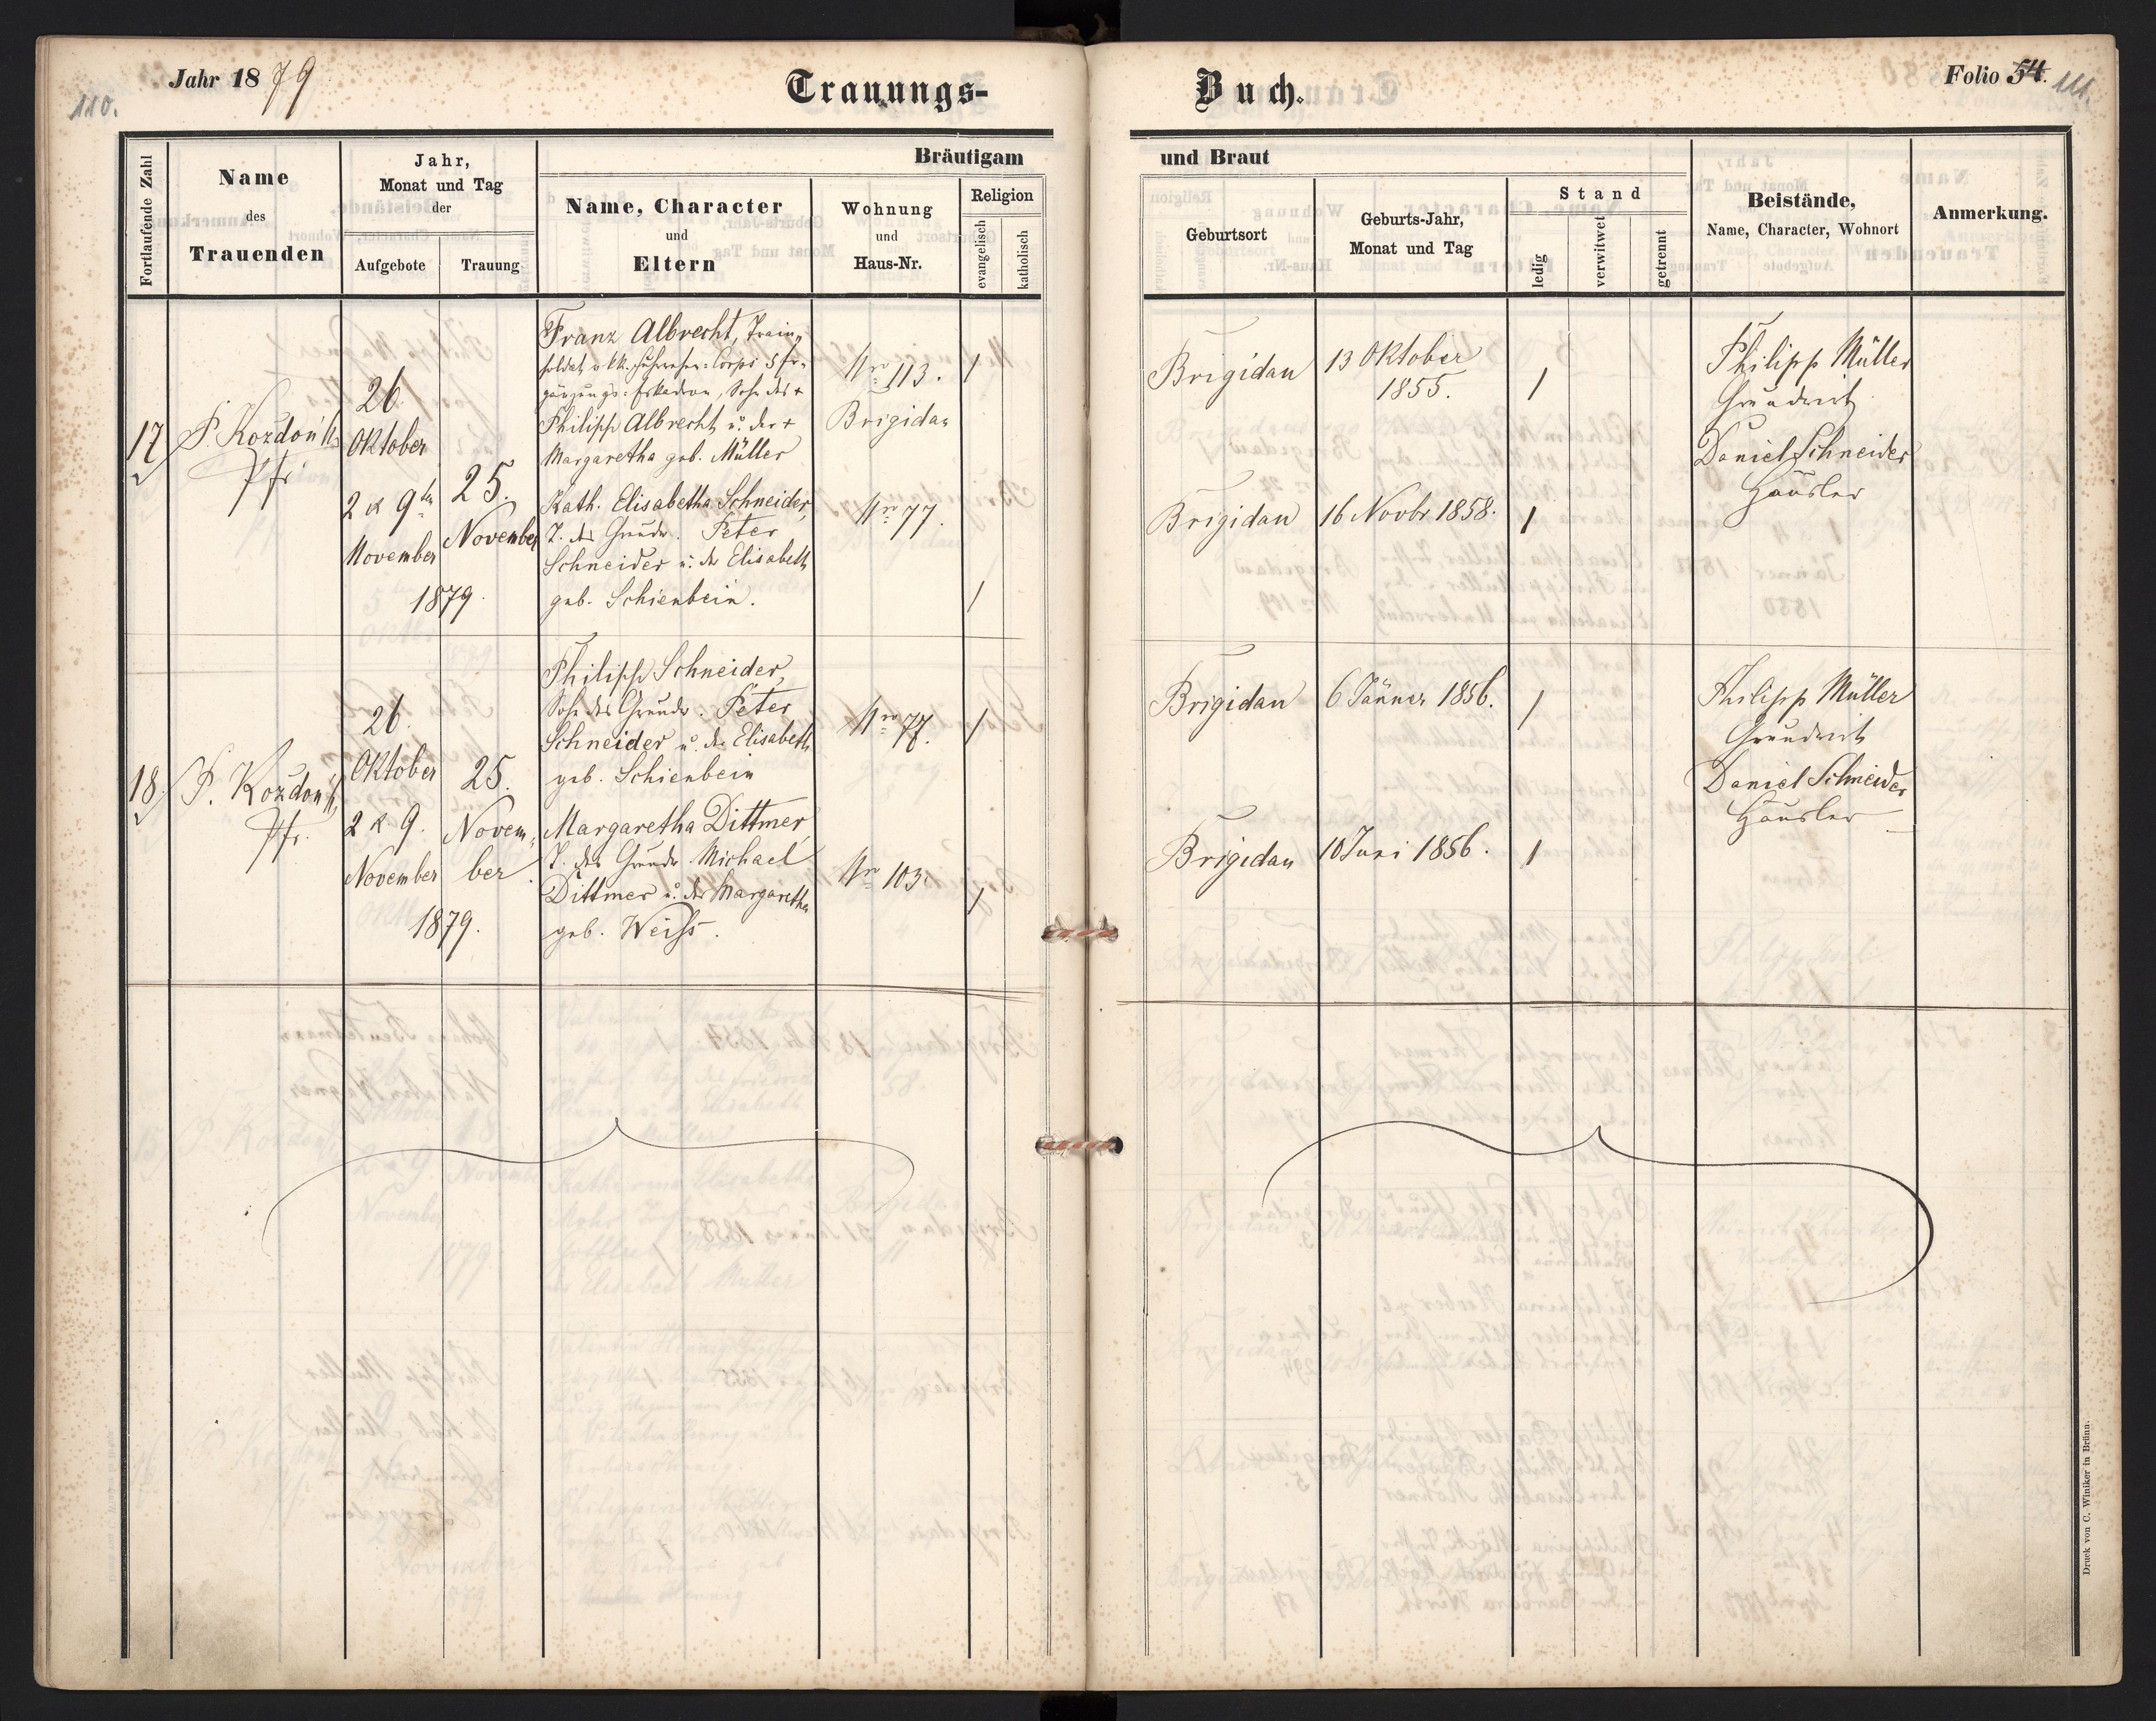 110.
Jahr 1879
Trauungs-
Buch.
Folio 54. 111.
Fortlaufende Zahl
Name
des
Trauenden
Jahr,
Monat und Tag
der
Aufgebote
Trauung
Bräutigam
Name, Character
und
Eltern
Wohnung
und
Haus-Nr.
Religion
evangelisch
katholisch
und Braut
Geburtsort
Geburts-Jahr,
Monat und Tag
Stand
ledig
verwitwet
getrennt
Beistände,
Name, Character, Wohnort
Anmerkung.
17
Pfr
26
Oktober
2 & 9ten
November
25.
November
1879
Franz Albrecht, Train-
soldat v. kk. Fuhrwesen-Corps 5 Er-
gänzungs-Eskadron, Sohn des +
Philipp Albrecht u. der +
Margaretha geb. Müller
Kath. Elisabetha Schneider,
T. des Grundw. Peter
Schneider u. der Elisabeth
geb. Schienbein.
Nro 113.
Brigidau
Nro 77.
/
/
Brigidau
13 Oktober
1855.
/
Brigidau
16 Novbr 1858.
/
Philipp Müller
Grundwirt
Daniel Schneider
Häusler
18
Pfr.
26.
Oktober
2 & 9.
November
25.
Novem-
ber
1879.
Philipp Schneider,
Sohn des Grundw. Peter
Schneider u. der Elisabeth
geb. Schienbein
Margaretha Dittmer,
T. des Grundw. Michael
Dittmer u. der Margaretha
geb. Weiss.
Nro 77.
Nro 103.
/
/
Brigidau
6 Jänner 1856.
/
Brigidau
10 Juni 1856.
/
Philipp Müller
Grundwirt
Daniel Schneider
Häusler
Druck von C. Winiker in Brünn.